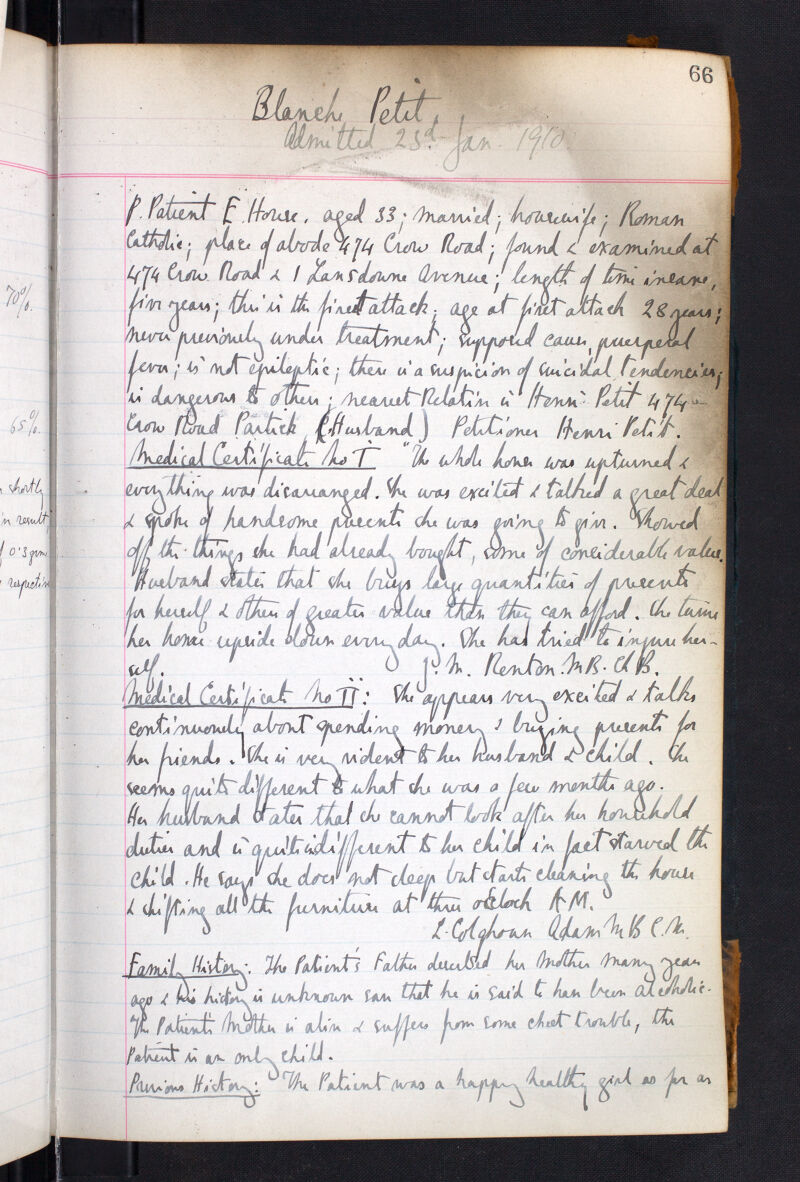 66
Blanche Petit.
Admitted 23d. Jan. 1910.
P. Patient E. House. aged 33; married; housewife; Roman
Catholic; place of abode 474 Crow Road; found & examined at
474 Crow Road & 1 Lansdowne Avenue; length of time insane,
five years; this is the first attack; age at first attack 28 years;
never previously under treatment; supposed cause, puerperal
fever; is not epileptic; there is a suspicion of suicidal tendencies;
is dangerous to others; nearest Relative is Henri Petit 474
Crow Road Partick (Husband) Petitioner Henri Petit.
Medical Certificate No I "The whole house was upturned &
everything was disarranged. She was excited & talked a great deal
& spoke of handsome presents she was going to give. Showed
off the things she had already bought, some of considerable value.
Husband states that she buys large quantities of presents
for herself & others of greater value than they can afford. She turns
her house upside down every day. She has tried to injure her-
self. J. M. Renton. M.B. Ch.B.
Medical Certificate No II: She appears very excited & talks
continuously about spending money & buying presents for
her friends. She is very violent to her husband & child. She
seems quite different to what she was a few months ago.
Her husband states that she cannot look after her household
duties and is quite indifferent to her child in fact starved the
child. He says she does not sleep but starts cleaning the house
& shifting all the furniture at three o'clock A.M.
L. Colquhoun Adam M.B C.M.
Family History: The Patient's Father deserted her Mother many years
ago & his history is unknown save that he is said to have been alcoholic.
The Patient's Mother is alive & suffers from some chest trouble, the
Patient is an only child.
Previous History: The Patient was a happy healthy girl as far as
70%.
65%.
shortly
in result,
0.3 grm
respective